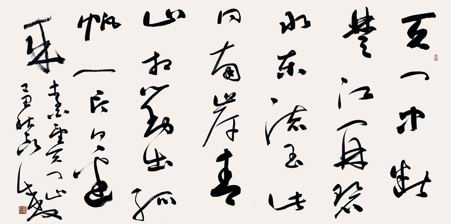 天门中断
楚江开碧
水东流至此
回两岸青
山相对出孤
帆一片日边
来
李白望天门山